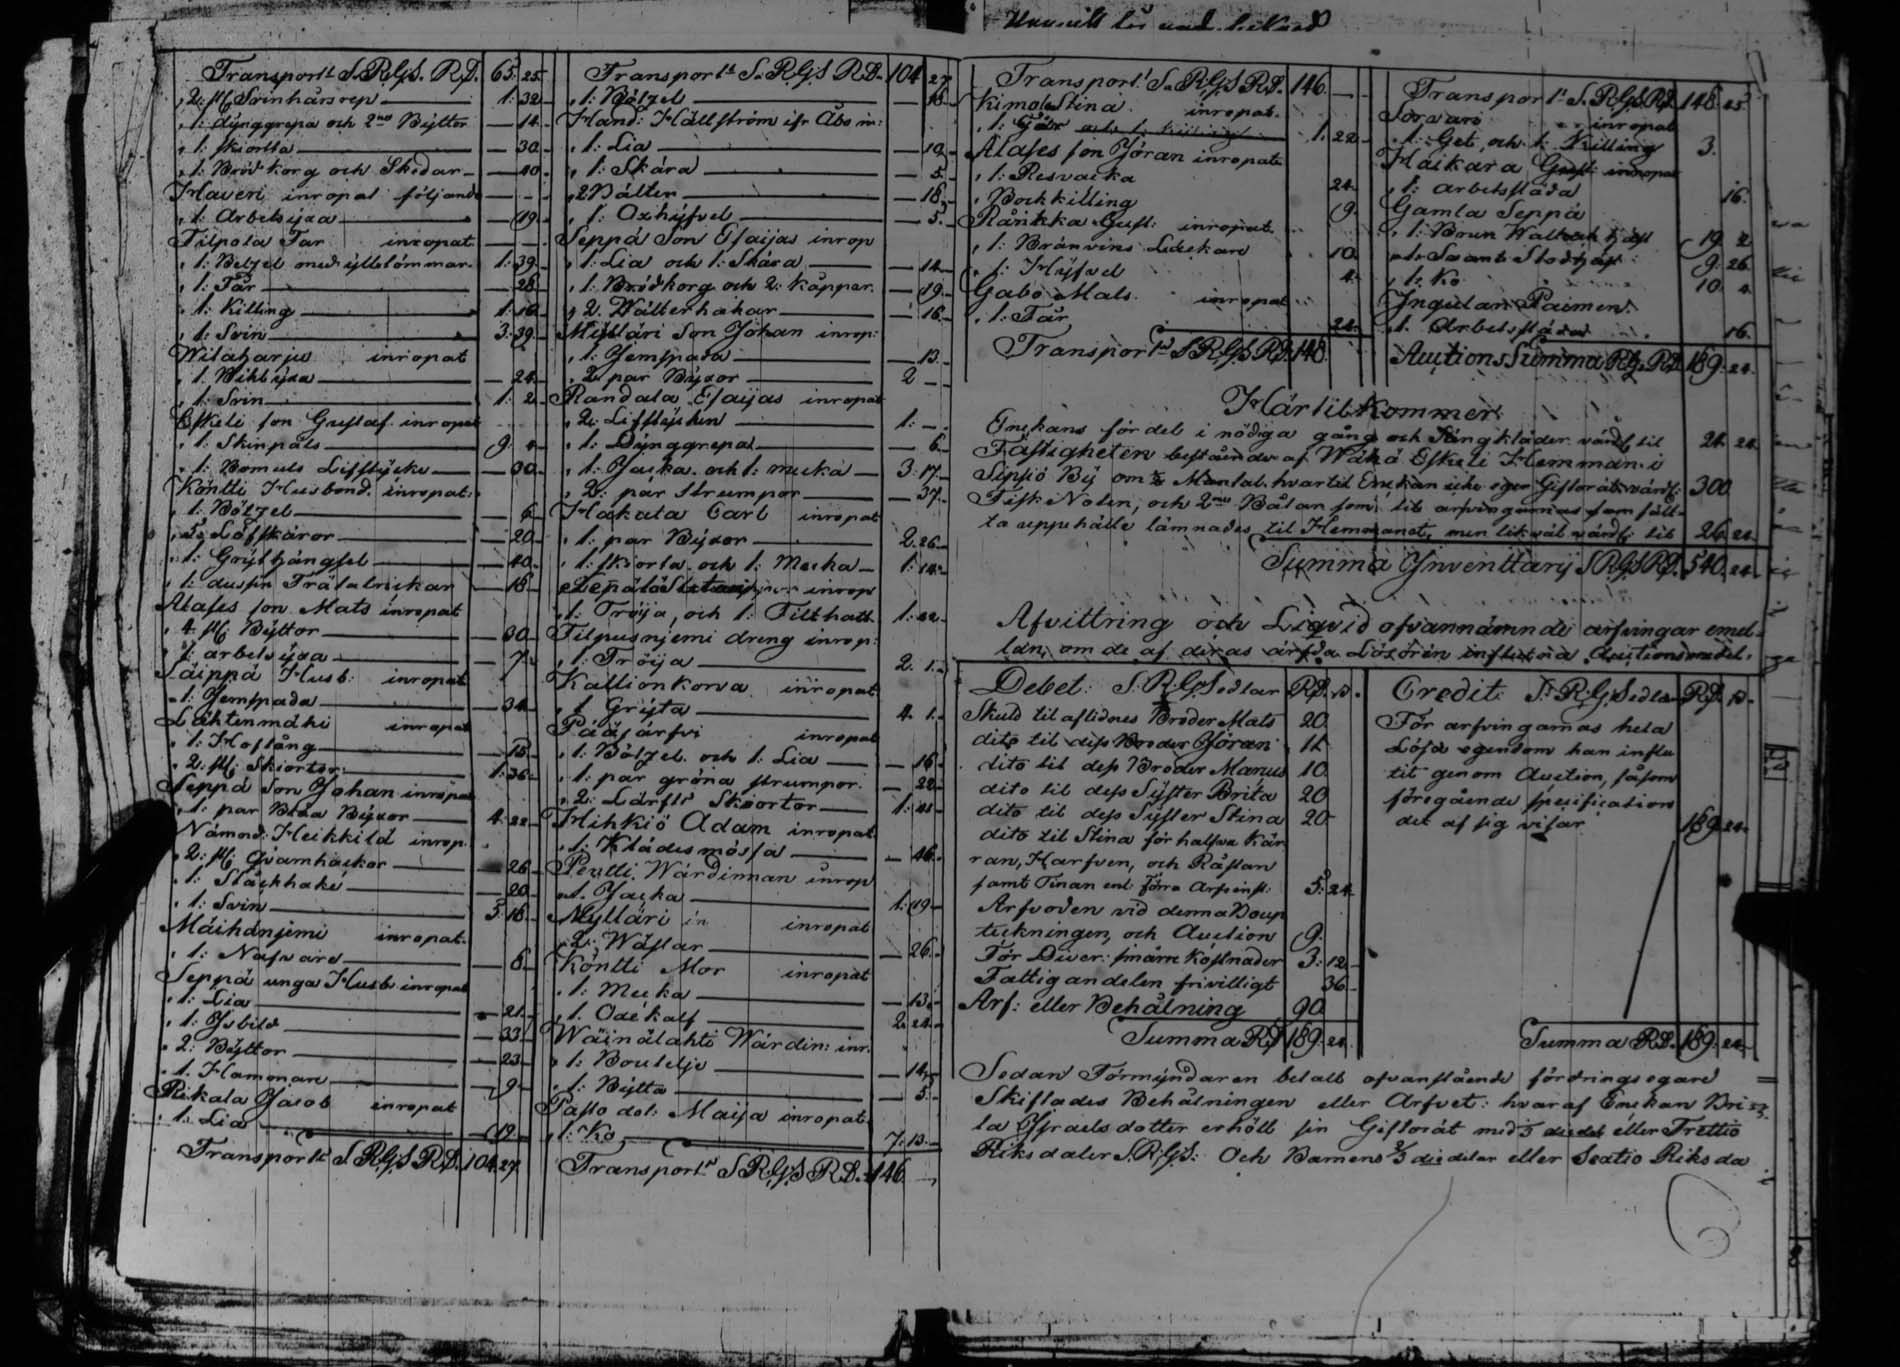 Transport S.R.G.S. R.D. 65. 25.
„ 2: st Svinhårsrep — 1: 32
„ 1: dynggrepa och 2ne Byttor — 14.
„ 1: skiorta — 30.
„ 1: Brödkorg och Skedar — 10
Haveri inropat följande
„ 1: Arbetsyxa — 19.
Tilpola Far inropat
„ 1: Betzel med — 1: 39.
„ 1: Får — 28.
„ 1: Killing — 1: 16.
„ 1: Svin — 3: 39.
Wilaharju inropat
„ 1: — 24.
„ 1: Svin — 1: 2.
Eskeli son Gustaf inropat
„ 1: Skinpäls — 9.
„ 1: Bomuls Lifstycke — 30.
Köntti Husbond. inropat:
„ 1: Bötzel — 6
„ 5: Löfskäror — 20.
„ 1: — 40.
„ 1: dussin Trätalrickar — 18.
Alases son Mats inropat
„ 4 st Byttor — 30.
„ 1: arbetsyxa — 7.
Säippä Husb: inropat
„ 1: Jernspada — 34.
Lähtenmäki inropat
„ 1: Hoftång — 13.
„ 2: st Skiortor — 1: 36.
Seppä Son Johan inropat
„ 1: par Blåa Byxor — 4. 22.
Nämnd: Heikkilä inrop.
„ 2: st Qvarnhackor — 26.
„ 1: — 20.
„ 1: Svin — 5: 16.
Mäihäniemi inropat.
„ 1: Nafvare — 8.
Seppä unga Husb: inropat
„ 1: Lia — 21.
„ 1: Isbill — 33.
„ 2: Byttor — 23.
„ 1: Hammare — 9.
Rikala Jacob inropat
„ 1: Lia — 19.
Transport S.R.G.S. R.D. 104. 27.
Transport S.R.G.S R.D. 104. 27
„ 1: Bötzel — 18.
Hand: Hällström ifr Åbo in:
„ 1: Lia — 19.
„ 1: Skära — 5.
„ 2 Bälten — 18.
„ 1: Oxhyfvel — 5.
Seppä Son Esaijas inrop
„ 1: Lia och 1: Skära — 14.
„ 1: Brödkorg och 2: käppar. — 19.
„ 2. Wälterhakar — 16.
Mylläri Son Johan inrop:
„ 1: Jernspada — 13.
„ 2 par Byxor — 2 —
Randala Esaijas inropat
„ 2: Lifstycken — 1: —
„ 1: Dynggrepa — 6.
„ 1: Jacka och 1: mecka — 3: 17.
„ 2: par strumpor — 37.
Hakala Carl inropat
„ 1: par Byxor — 2. 26.
„ 1: skiorta och 1: Mecka — 1: 14.
inrop
„ 1: Tröija, och 1: Filthatt. 1: 22.
Tilpusnjemi dreng inrop:
„ 1: Tröija — 2. 1.
Kallionkorva inropat
„ 1 Gryta — 4. 1.
Pääjärfvi inropat
„ 1: Bötzel och 1: Lia — 16.
„ 1: par gröna strumpor. — 22.
„ 2: Lärfts Skiortor — 1: 41.
Hihkiö Adam inropat
„ 1: Klädesmössa — 46.
Pentti Wärdinnan inrop
„ 1. Jacka — 1: 19.
Myllärin inropat
„ 2: Wästar — 26.
Köntti Mor inropat
„ 1: Mecka — 13.
„ 1. Oxekalf — 2. 24.
Wäinälahti Wärdin: inr.
„ 1: Boutelje — 14.
„ 1: Bytta — 5.
Pasto dot: Maija inropat
„ 1: Ko — 7: 13.
Transport S.R.G.S R.D. 146. —
Transport S.R.G.S. R.D. 146. —
Kimola Stina inropat.
„ 1: 1: 22.
Alases son Jöran inropat
„ 1: Resvacka 24.
„ Bockkilling 9.
Rånkka Gust: inropat
„ 1: Bränvins Läckare 10.
„ 1: Hyfvel 4.
Gabo Mats inropat
„ 1: Får 24.
Transport S.R.G.S. R.D. 148.
Transport S.R.G.S. R.D. 148. 25.
Sorvari inropat
„ 1: Get, och 1: Killing 3.
Haikara Gust: inropat
„ 1: arbetsslåda 16.
Gamla Seppä
„ 1: Brun Wallach häst 19. 2
„ 1: Svart Stodhäst 9. 26.
„ 1: Ko 10. 4.
Ingilan Paimen.
„ 1. Arbetsslåda 16.
Auctions Summa R.G. R.D. 189. 24.
Härtil kommer
Enckans fördel i nödiga gång och Sängkläder värd: til 24. 24.
Fastigheten bestående af Wähä Eskeli Hemman i
By om Mantal hvartil Enckan icke eger Giftorätt värd: 300
Fisk Noten, och 2ne Båtar som til arfvingarnas
ta uppehälle lämnades til Hemmanet, men likväl värd: til 26. 24.
Summa Inventtary S.R.G.S R.D. 540. 24.
Afvittring och Liqvid ofvannämnde arfvingar emel-
lan, om de af deras ärfda Lösören influtna Auctionsmedel:
Debet: S.R.G. Sedlar R.D. s.
Skuld til aflidnes Broder Mats 20
dito til dess Broder Jöran 11
dito til dess Broder Marcus 10
dito til dess Syster Brita 20
dito til dess Syster Stina 20
dito til Stina för halfva Kär-
ran, Harfven, och Råstan
samt Tinan enl: Förra Arfsinst: 5: 24.
Arfvoden vid denna Boup
teckningen, och Auction 9.
För Diver: smärre kostnader 3: 12.
Fattigandelen frivilligt 36.
Arf: eller Behålning 90
Summa R.D 189. 24.
Credit: S:R:G: Sedlar R.D. s.
För arfvingarnas hela
Lösa egendom han influ
tit genom Auction, såsom
föregående specification
det af sig visar 189. 24.
Summa R.D. 189. 24.
Sedan Förmyndaren betalt ofvanstående fördringsegare
Skiftades Behålningen eller Arfvet: hvaraf Enckan Bri
ta Israels dotter erhölt sin Giftorät med eller Trettio
Riksdaler S.R.G.S: Och Barnens 2/3 diedelar eller Sextio Riksda